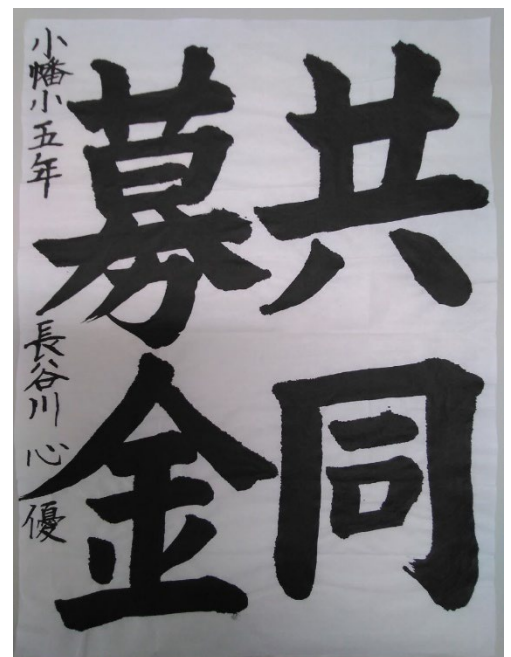 共同
募金
小幡小五年 長谷川心優